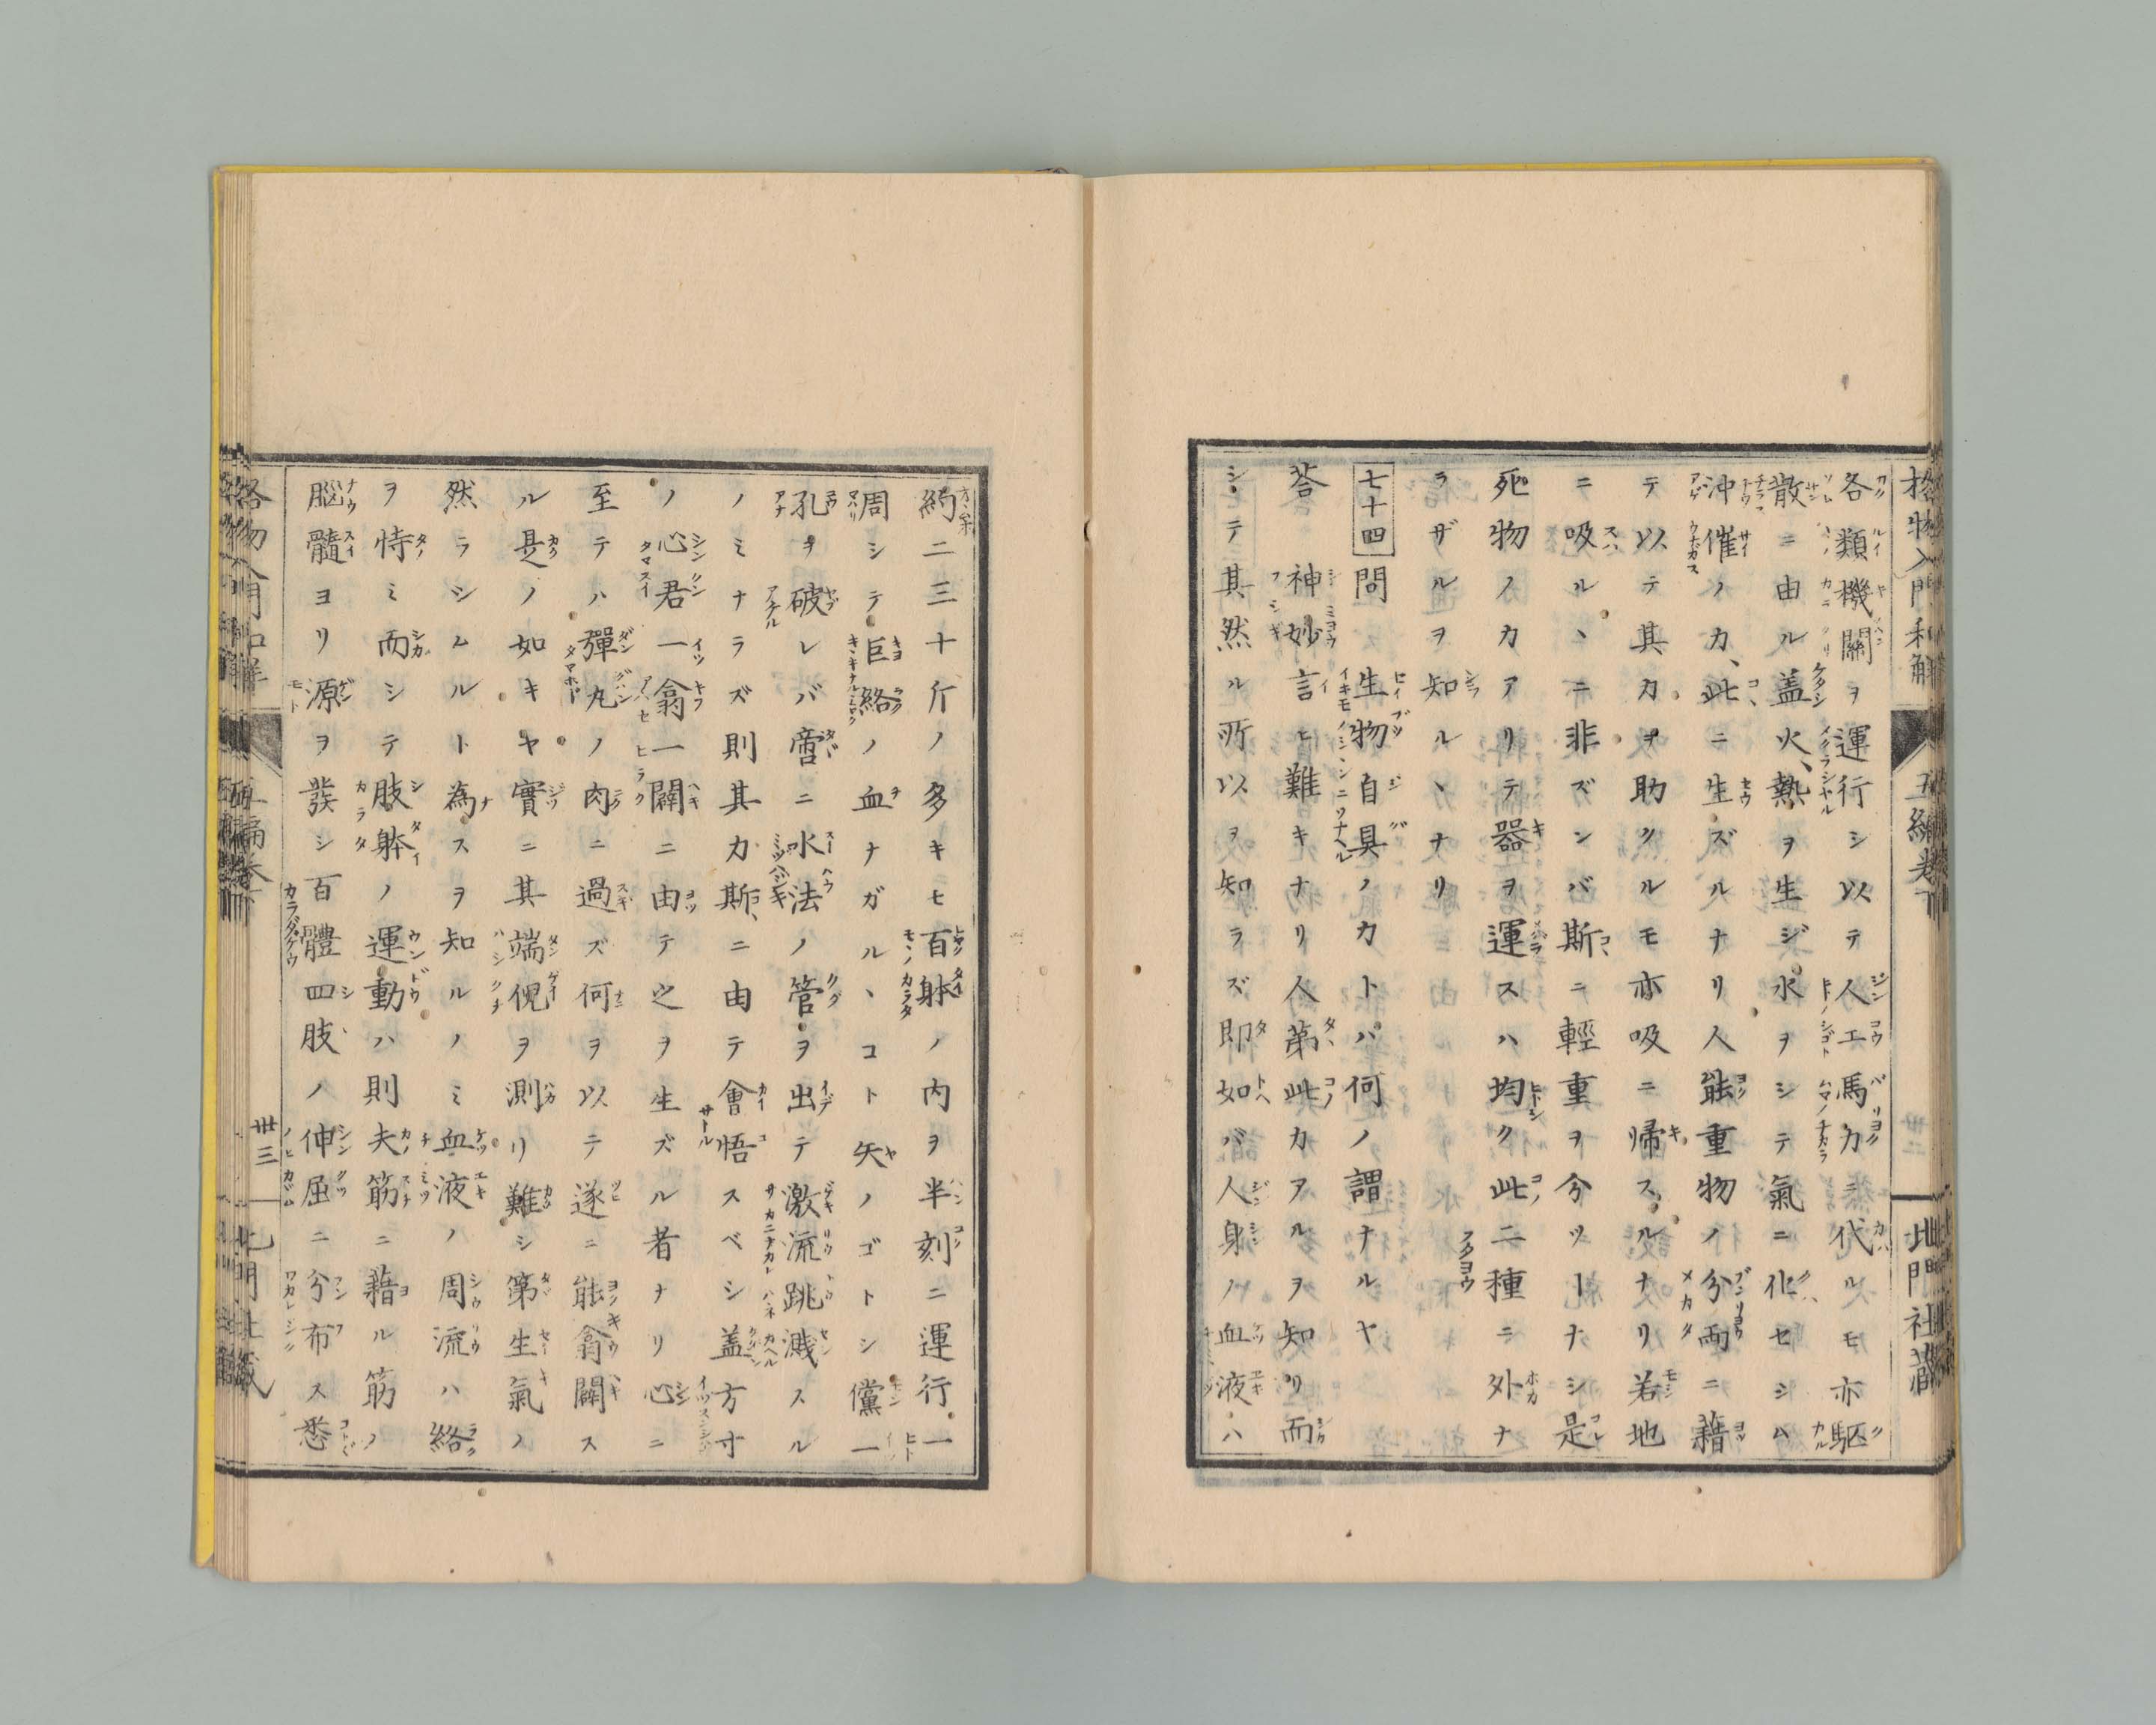 格物入門和解 五編卷下 北門社藏
各類機關ヲ運行シ以テ人工馬力ニ代ルモ亦駆
散ニ由ル盖火熱ヲ生ジ水ヲシテ氣ニ化セシム
沖催ノ力此ニ生ズルナリ人能重物ノ分兩ニ藉
テ以テ其力ヲ助クルモ亦吸ニ帰スルナリ若地
ニ吸ルヽニ非ズンバ斯ニ輕重ヲ分ツ一ナシ是
死物ノ力アリテ器ヲ運スハ均ク此二種ニ外ナ
ラザルヲ知ルヽナリ
七十四 問 生物自具ノ力トハ何ノ謂ナルヤ
荅 神妙言ヒ難キナリ人第此力アルヲ知リ而
シテ其然ル所以ヲ知ラズ即如バ人身ノ血液ハ
約二三十斤ノ多キモ百躰ノ内ヲ半刻ニ運行一
周シテ巨絡ノ血ナガルヽコト矢ノゴトシ儻一
孔ヲ破レバ啻ニ水法ノ管ヲ出テ激流跳濺スル
ノミナラズ則其力斯ニ由テ會悟スベシ盖方寸
ノ心君一翕一闢ニ由テ之ヲ生ズル者ナリ心ニ
至テハ彈丸ノ肉ニ過ズ何ヲ以テ遂ニ能翕闢ス
ル是ノ如キヤ實ニ其端倪ヲ測リ難シ第生氣ノ
然ラシムルト為スヲ知ルノミ血液ノ周流ハ絡
ヲ恃ミ而シテ肢躰ノ運動ハ則夫筋ニ藉ル筋ノ
腦髓ヨリ源ヲ發シ百體四肢ノ伸屈ニ分布ス悉
格物入門和解 五編卷下 卅三 北門社藏